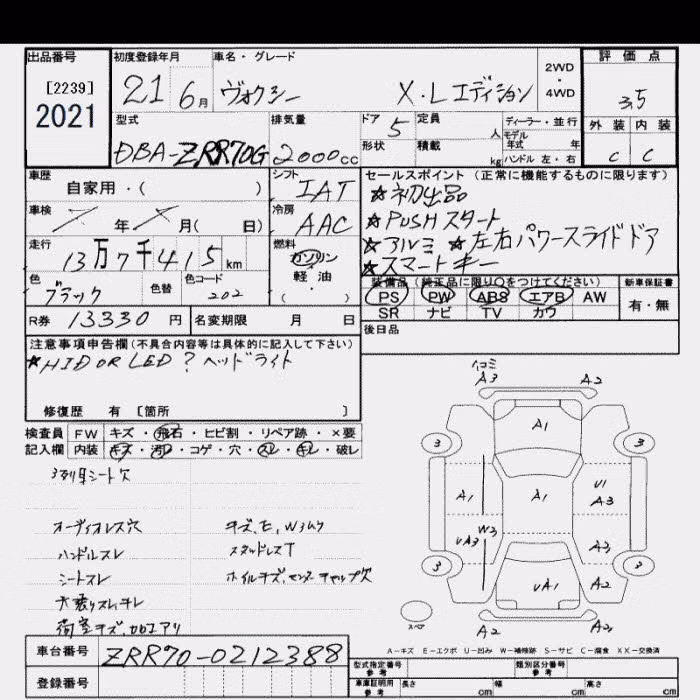 出品番号 初度登録年月 車名・グレード 2WD・4WD 評価点
[2239]
2021
21 6月 ヴォクシー X・Lエディション 3.5
型式 排気量 ドア 定員 人 ディーラー・並行 外装 内装
DBA-ZRR70G 2000cc 5 形状 積載 kg モデル年式 年 ハンドル 左・右 C C
車歴 自家用・( ) シフト IAT
セールスポイント(正常に機能するものに限ります)
★初出品
★PUSHスタート
★アルミ ★左右パワースライドドア
★スマートキー
車検 年 月( 日) 冷房 AAC
走行 13万7千415km 燃料 ガソリン・軽油・( )
色 ブラック 色替 色コード 202
装備品(純正品に限り○をつけてください) 新車保証書
PS PW ABS エアB AW 有・無
SR ナビ TV カワ
R券 13330円 名変期限 月 日
後日品
注意事項申告欄(不具合内容等は具体的に記入して下さい)
★HID OR LED?ヘッドライト
修復歴 有 [箇所 ]
検査員 FW キズ・飛石・ヒビ割・リペア跡・×要
記入欄 内装 キズ・汚レ・コゲ・穴・スレ・キレ・破レ
3列目シート欠
オーディオレス穴 キズ、E、W3ムケ
ハンドルスレ スタッドレスT
シートスレ ホイルキズ、センターキャップ欠
荷室キズ、加工アリ
A3 A2
A1
3 3
A1 A1 U1 A3
UA3 W3 A3
3 UA1 A2 3
スペア A2 A2
A-キズ E-エクボ U-凹み W-補修跡 S-サビ C-腐食 XX-交換済
車台番号 ZRR70-0212388
登録番号
型式指定番号 参考 類別区分番号 参考
車庫証明用 参考 長さ cm 幅 cm 高さ cm